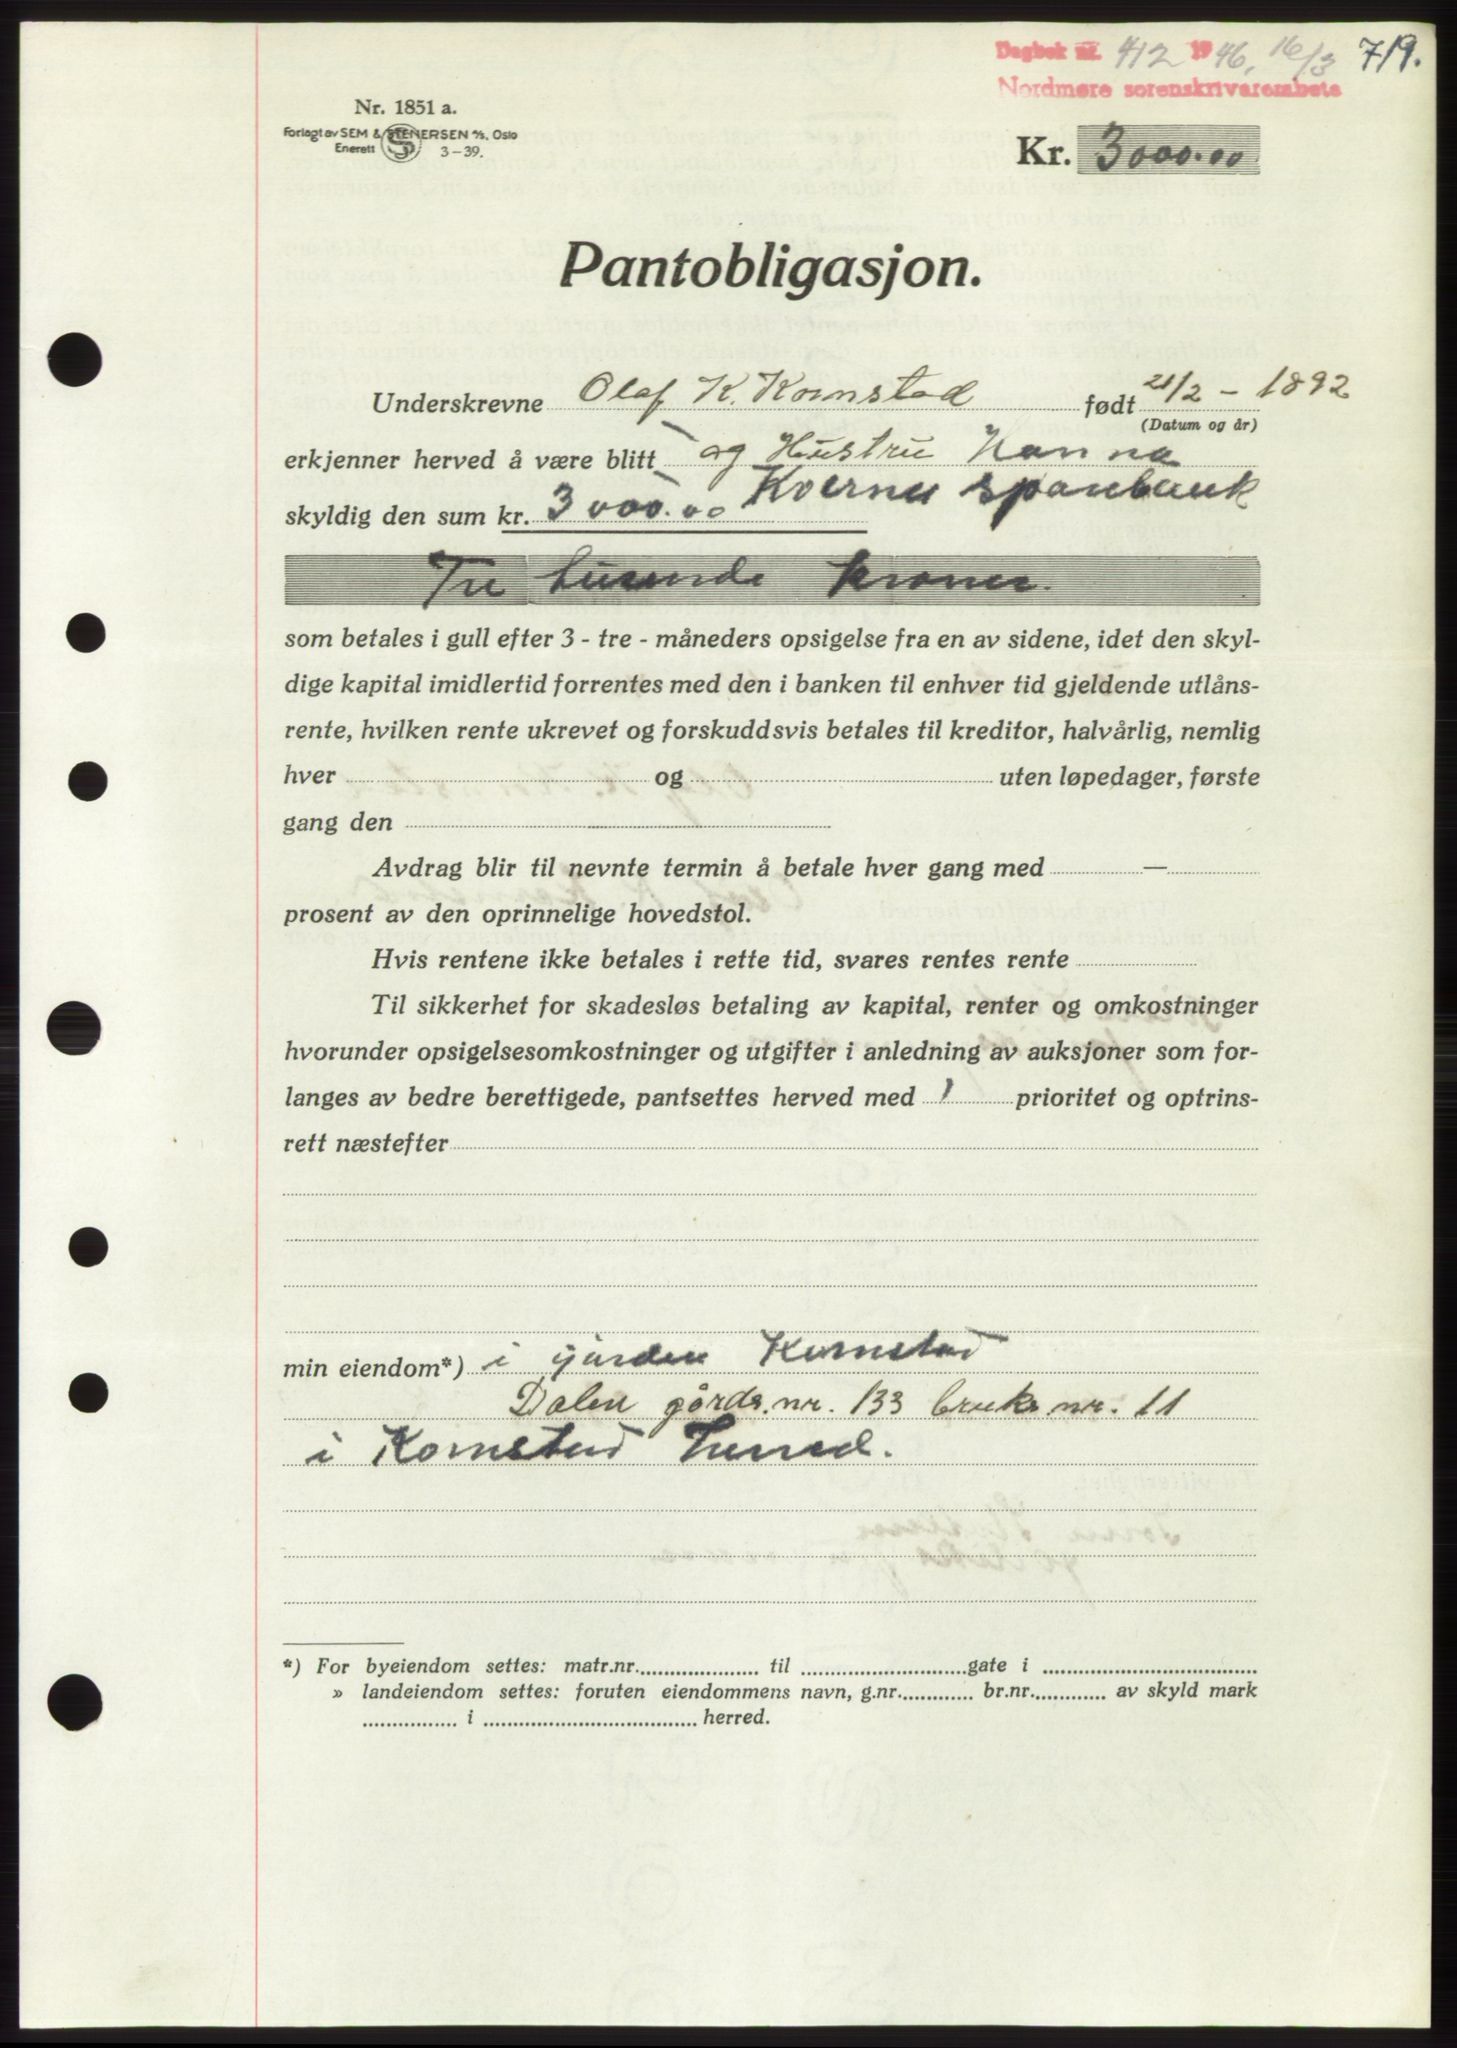 Dagbok nr. 412 1946, 16/3 719.
Nordmøre sorenskrivarembete
Nr. 1851 a.
Forlagt av SEM & STENERSEN A/S, Oslo
Enerett 3-39.
Kr. 3000.00
Pantobligasjon.
Underskrevne Olaf K. Kornstad født 21/2 - 1892
(Datum og år)
erkjenner herved å være blitt og Hustru Hanna
Kvernes sparebank
skyldig den sum kr. 3000.00
Tre tusende kroner.
som betales i gull efter 3 - tre - måneders opsigelse fra en av sidene, idet den skyl-
dige kapital imidlertid forrentes med den i banken til enhver tid gjeldende utlåns-
rente, hvilken rente ukrevet og forskuddsvis betales til kreditor, halvårlig, nemlig
hver og uten løpedager, første
gang den
Avdrag blir til nevnte termin å betale hver gang med —
prosent av den oprinnelige hovedstol.
Hvis rentene ikke betales i rette tid, svares rentes rente
Til sikkerhet for skadesløs betaling av kapital, renter og omkostninger
hvorunder opsigelsesomkostninger og utgifter i anledning av auksjoner som for-
langes av bedre berettigede, pantsettes herved med 1 prioritet og optrins-
rett næstefter
min eiendom*) i gården Kornstad
Dalen gårds. nr. 133 bruks nr. 11
i Kornstad herred.
*) For byeiendom settes: matr.nr. til gate i
» landeiendom settes: foruten eiendommens navn, g.nr. br.nr. av skyld mark
i herred.